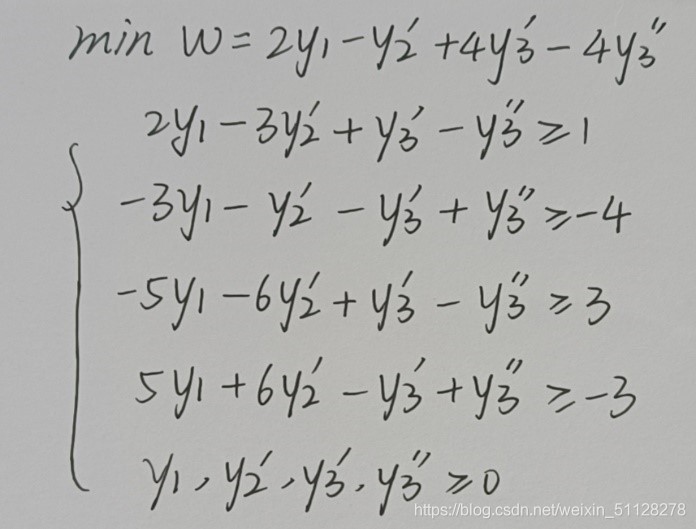 min W = 2y₁ - y₂′ + 4y₃′ - 4y₃″
2y₁ - 3y₂′ + y₃′ - y₃″ ≥ 1
-3y₁ - y₂′ - y₃′ + y₃″ ≥ -4
-5y₁ - 6y₂′ + y₃′ - y₃″ ≥ 3
5y₁ + 6y₂′ - y₃′ + y₃″ ≥ -3
y₁, y₂′, y₃′, y₃″ ≥ 0
https://blog.csdn.net/weixin_51128278